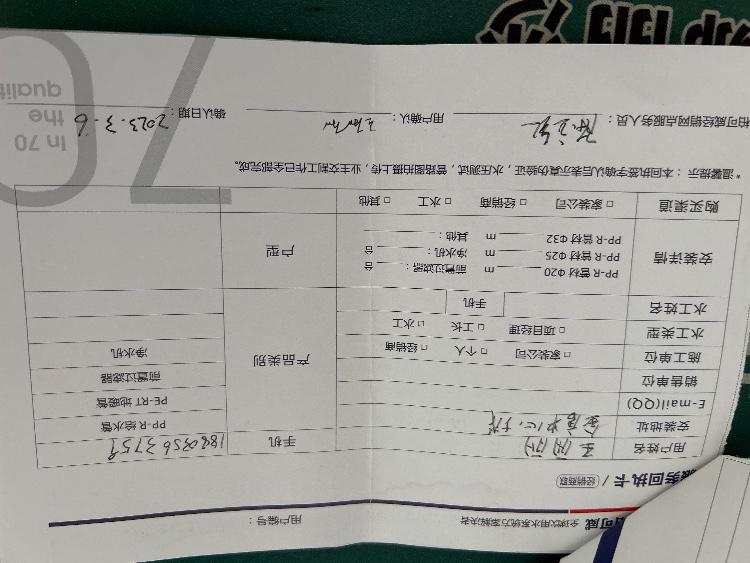 司威 全球饮用水系统方案解决者
用户编号：
服务回执卡 / 经销商联
用户姓名 手机 18803563759
安装地址
E-mail(QQ)
销售单位
施工单位 □ 家装公司 □ 个人 □ 经销商
水工类型 □ 项目经理 □ 工长 □ 水工
水工姓名 手机
产品类别
PP-R 给水管
PE-RT 地暖管
前置过滤器
净水机
安装详情
PP-R 管材 Φ20 m 前置过滤器： 台
PP-R 管材 Φ25 m 净水机： 台
PP-R 管材 Φ32 m 其他：
户型
购买渠道 □ 家装公司 □ 经销商 □ 水工 □ 其他
*温馨提示：本回执签字确认后表示真伪验证，水压测试，管路图拍摄上传，业主交割工作已全部完成。
柏可威经销网点服务人员：
用户确认：
确认日期： 2023.3.6
In 70
the
qualit
70